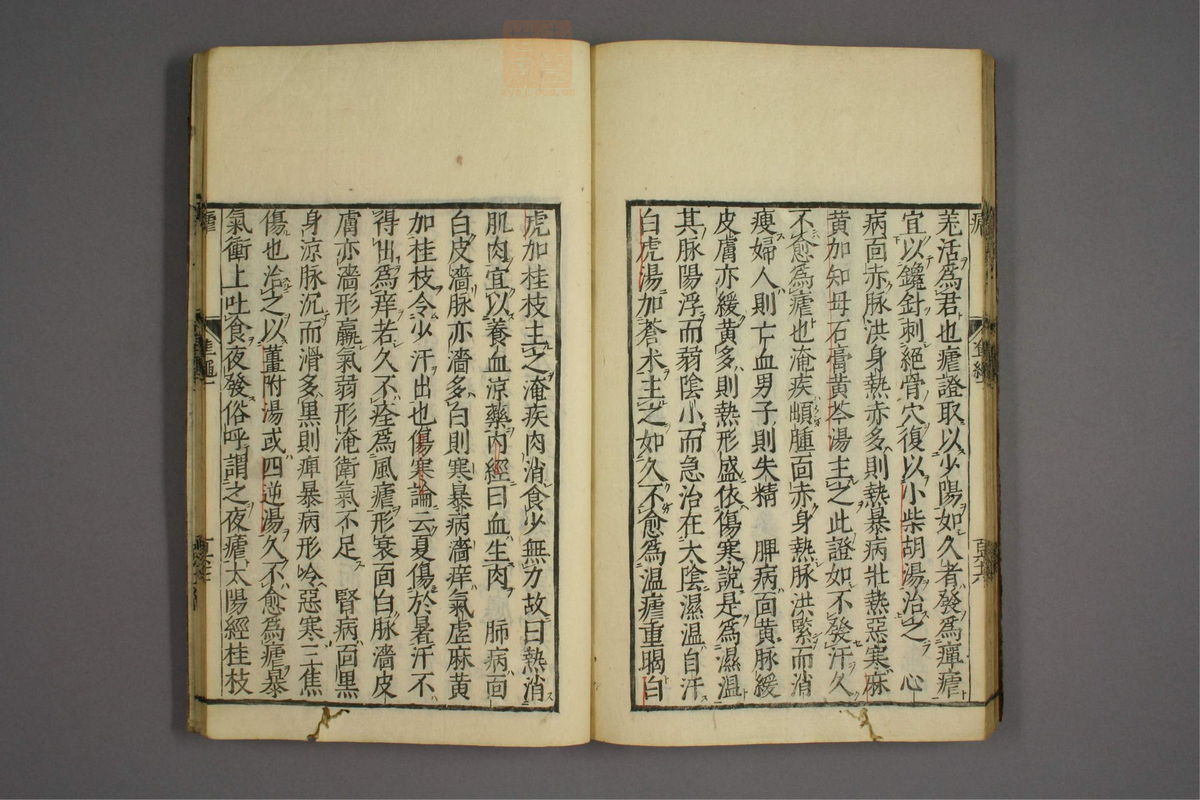 羌活爲君也瘧證取以少陽如久者發爲癉瘧
宜以鑱針刺絕骨穴復以小柴胡湯治之 心
病面赤脉洪身熱赤多則熱暴病壯熱惡寒麻
黄加知母石膏黄芩湯主之此證如不發汗久
不愈爲瘧也淹疾頔腫面赤身熱脉洪緊而消
瘦婦人則亡血男子則失精 脾病面黄脉緩
皮膚亦緩黄多則熱形盛依傷寒說是爲濕温
其脉陽浮而弱陰小而急治在太陰濕温自汗
白虎湯加蒼朮主之如久不愈爲温瘧重暍白
虎加桂枝主之淹疾肉消食少無力故曰熱消
肌肉宜以養血涼藥内經曰血生肉 肺病面
白皮濇脉亦濇多白則寒暴病濇痒氣虚麻黄
加桂枝令少汗出也傷寒論云夏傷於暑汗不
得出爲痒若久不痊爲風瘧形衰面白脉濇皮
膚亦濇形羸氣弱形淹衛氣不足 腎病面黒
身涼脉沉而滑多黒則痺暴病形冷惡寒三焦
傷也治之以薑附湯或四逆湯久不愈爲瘧暴
氣衝上吐食夜發俗呼謂之夜瘧太陽經桂枝